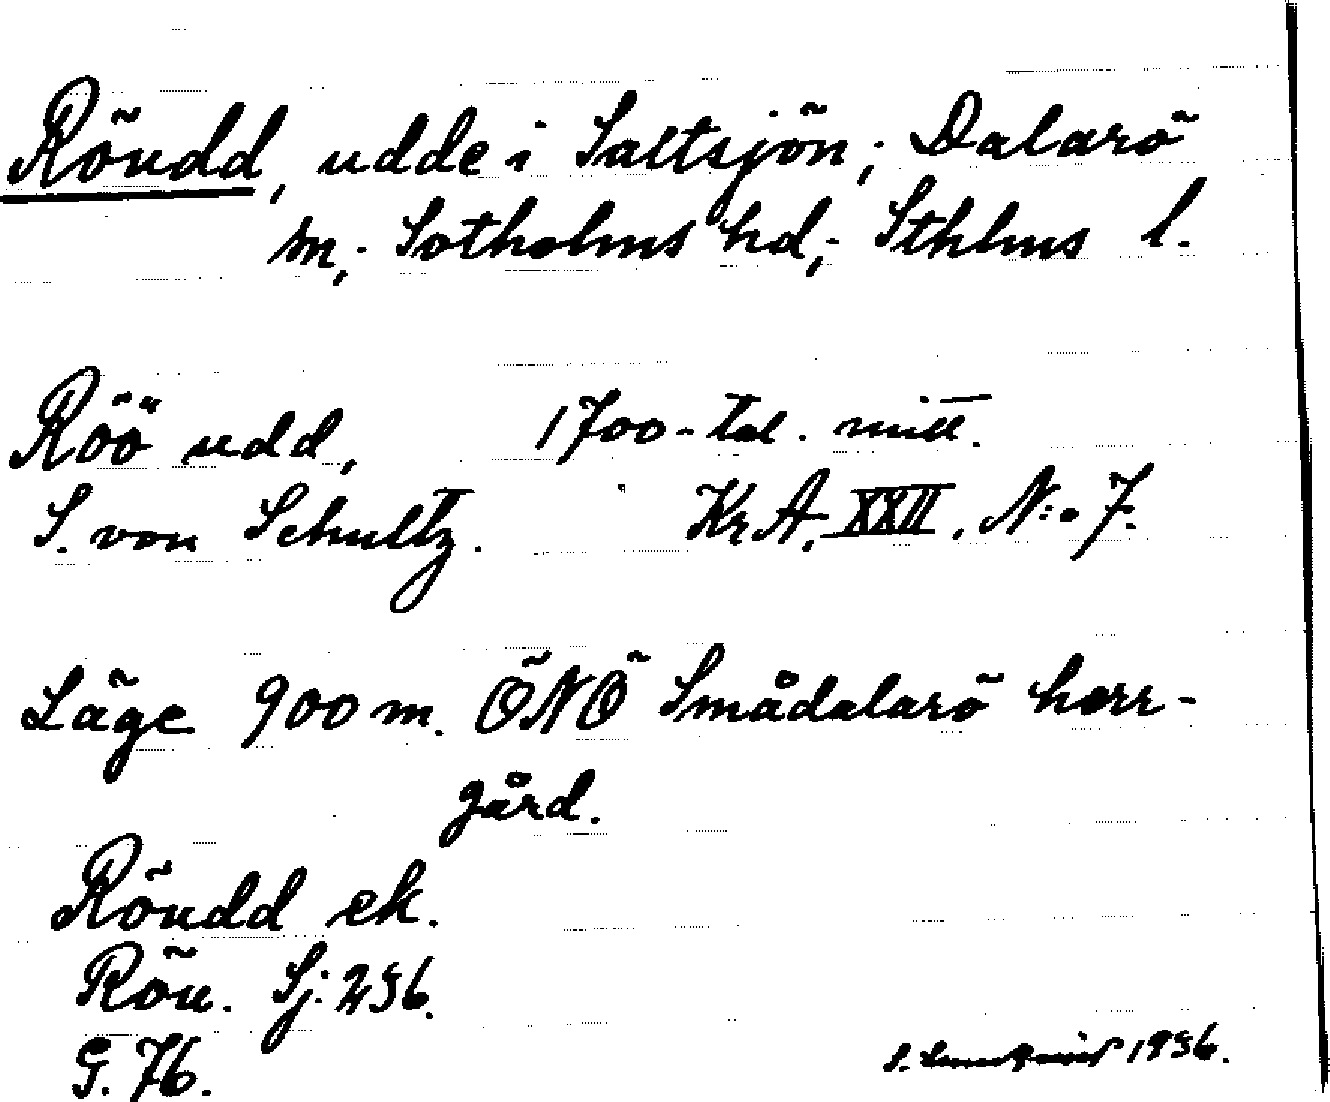 Röudd, udde i Saltsjön; Dalarö
sn; Sotholms hd; Sthlms l.
Röö udd, 1700-tal. mitt.
S. von Schultz. KrA, XXII, N:o 7.
Läge 900 m. ÖNÖ Smådalarö herr-
gård.
Röudd ek.
Röu. Sj: 236.
G. 76.
1936.